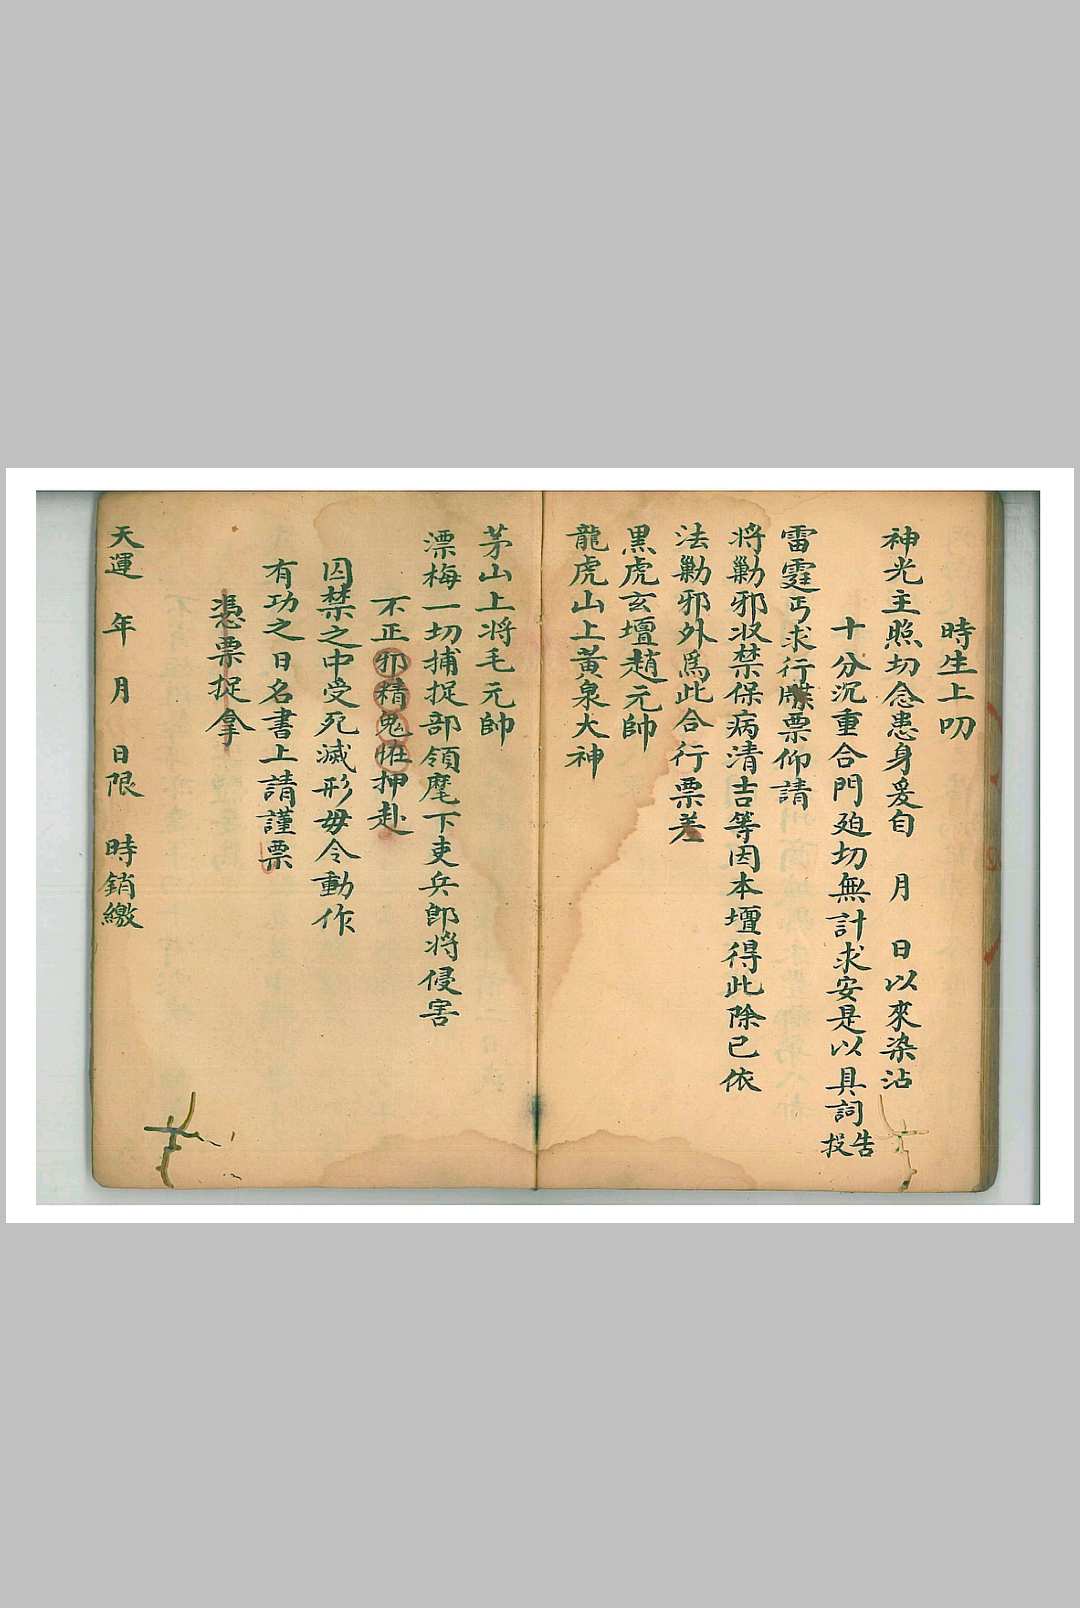 時生上叨
神光主照切念患身爰自　月　日以來染沾
十分沉重合門廹切無計求安是以具詞投告
雷霆丐求行牒票仰請
将勦邪収禁保病清吉等因本壇得此除已依
法勦邪外爲此合行票差
黒虎玄壇趙元帥
龍虎山上黃泉大神
茅山上将毛元帥
漂梅一切捕捉部領麾下吏兵郎将侵害
不正邪精鬼恠押赴
囚禁之中受死滅形毋令動作
有功之日名書上請謹票
憑票捉拿
天運　年　月　日限　時銷繳